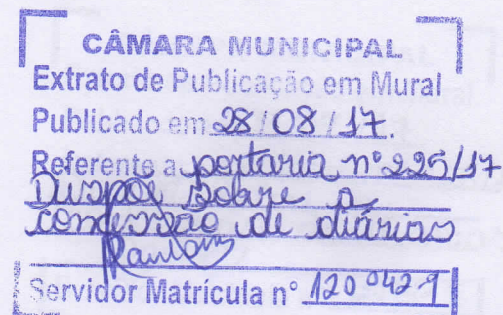 CÂMARA MUNICIPAL
Extrato de Publicação em Mural
Publicado em 28/08/17.
Referente a portaria nº 225/17
Dispõe sobre a
concessão de diárias
Servidor Matrícula nº 120042-1